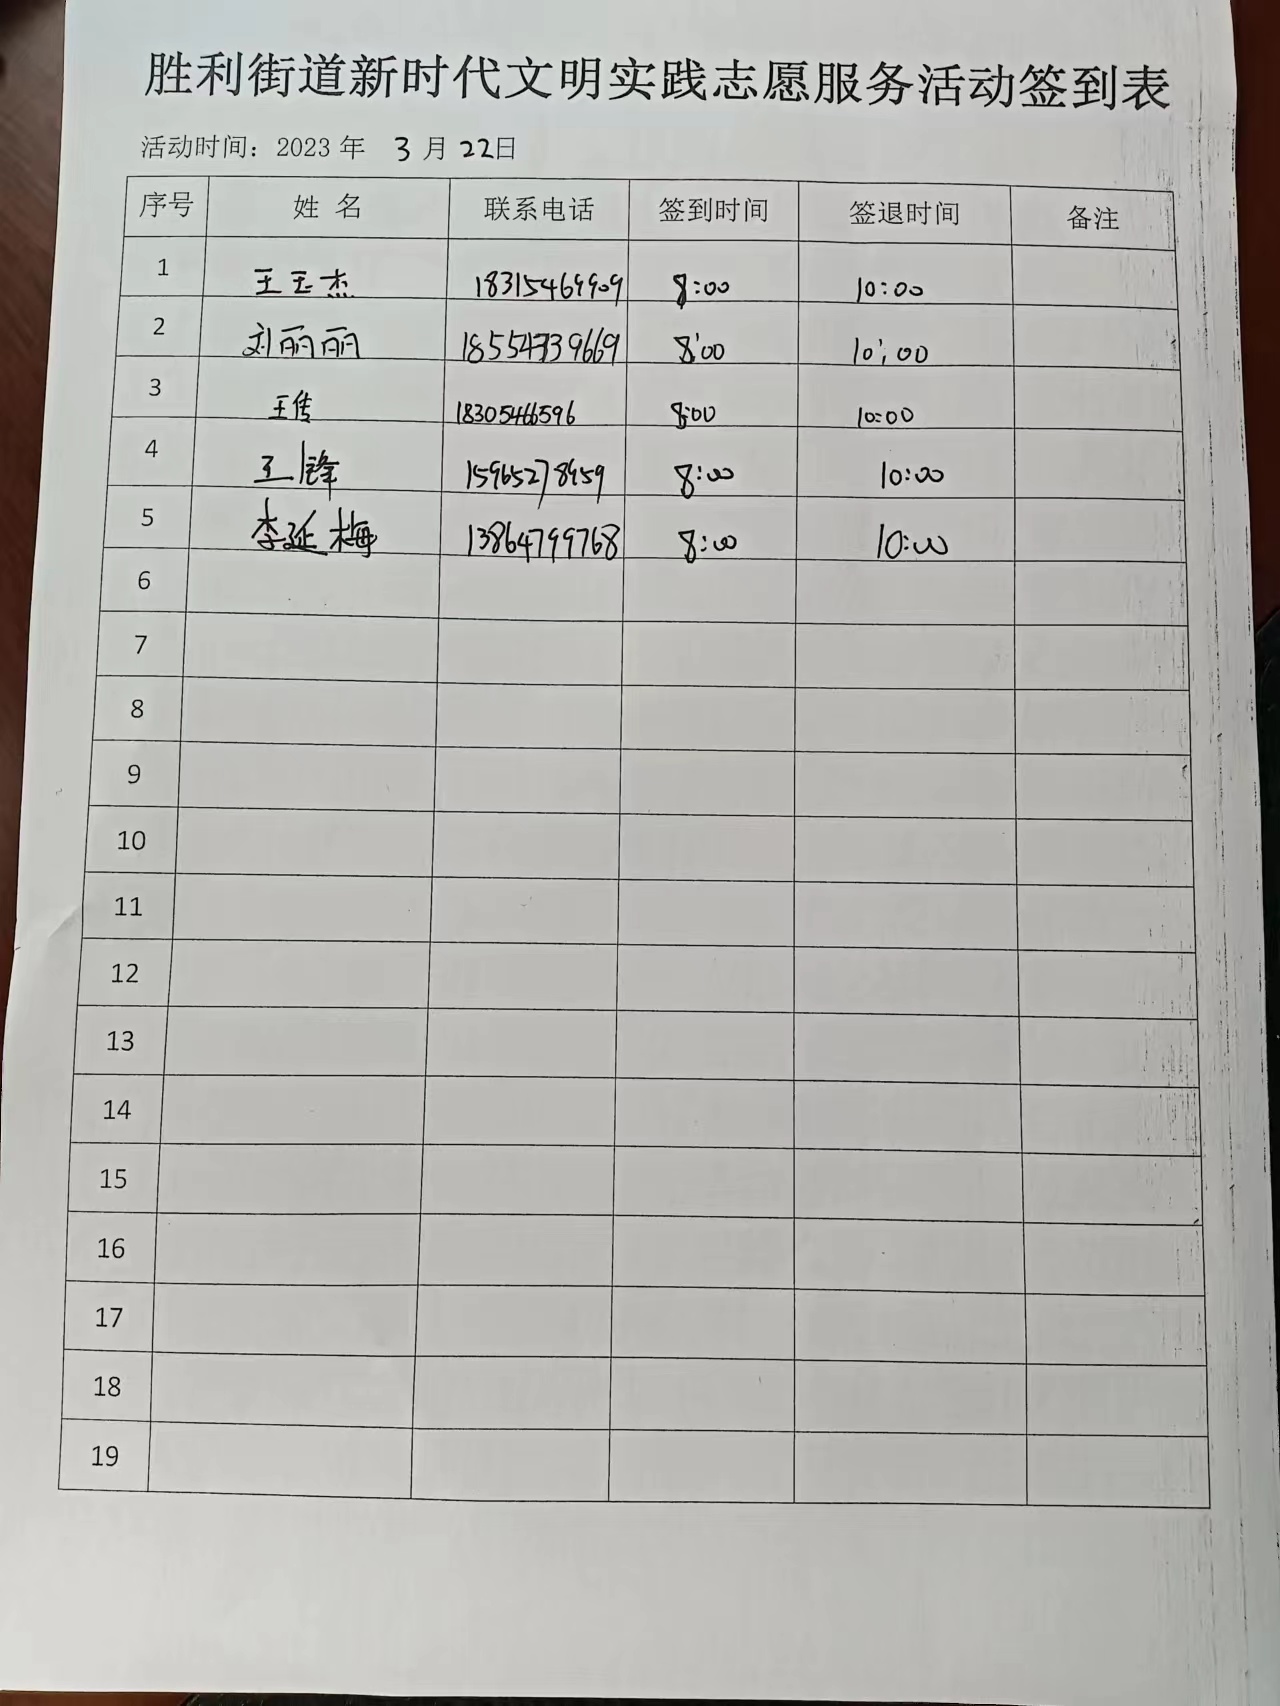 胜利街道新时代文明实践志愿服务活动签到表
活动时间：2023 年 3 月 22日
序号 姓 名 联系电话 签到时间 签退时间 备注
1 王玉杰 18315469909 8:00 10:00
2 刘丽丽 18554739669 8:00 10:00
3 王传 18305466596 8:00 10:00
4 王锋 15965278959 8:00 10:00
5 李延梅 13864799768 8:00 10:00
6
7
8
9
10
11
12
13
14
15
16
17
18
19